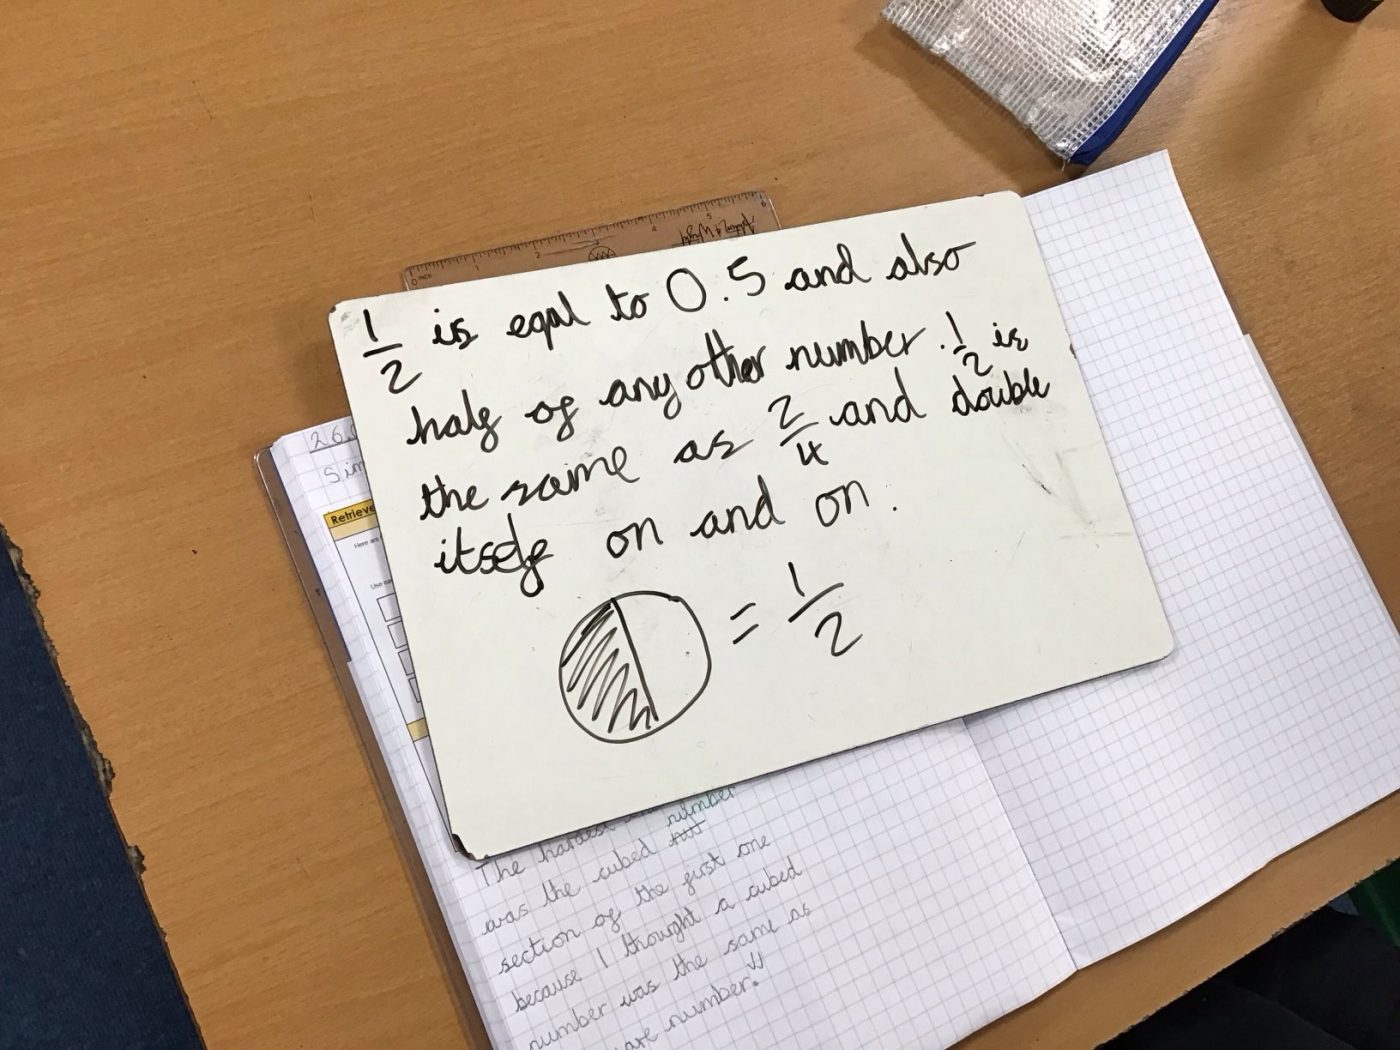 1/2 is eqal to 0.5 and also
half of any other number. 1/2 is
the same as 2/4 and double
itself on and on.
= 1/2
Retrieve
Here are
number
The hardest
was the cubed
section of the first one
because I thought a cubed
number was the same as
number!!
0 INCH 1 2 4 5 6